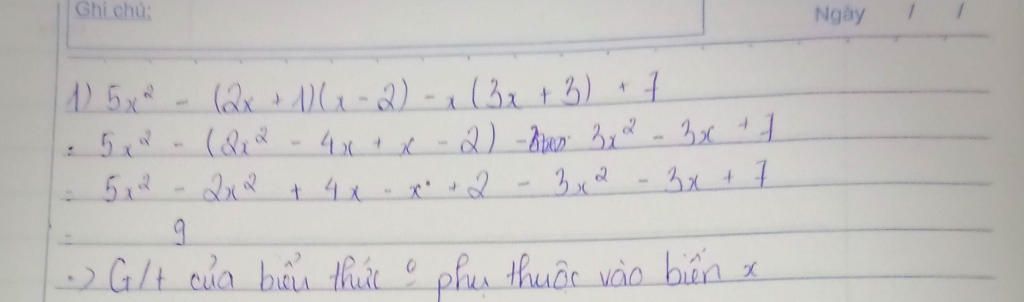 Ghi chú:
Ngày / /
1) 5x² - (2x + 1)(x - 2) - x (3x + 3) + 7
= 5x² - (2x² - 4x + x - 2) - 3x² - 3x + 7
= 5x² - 2x² + 4x - x + 2 - 3x² - 3x + 7
= 9
=> G/t của biểu thức º phụ thuộc vào biến x